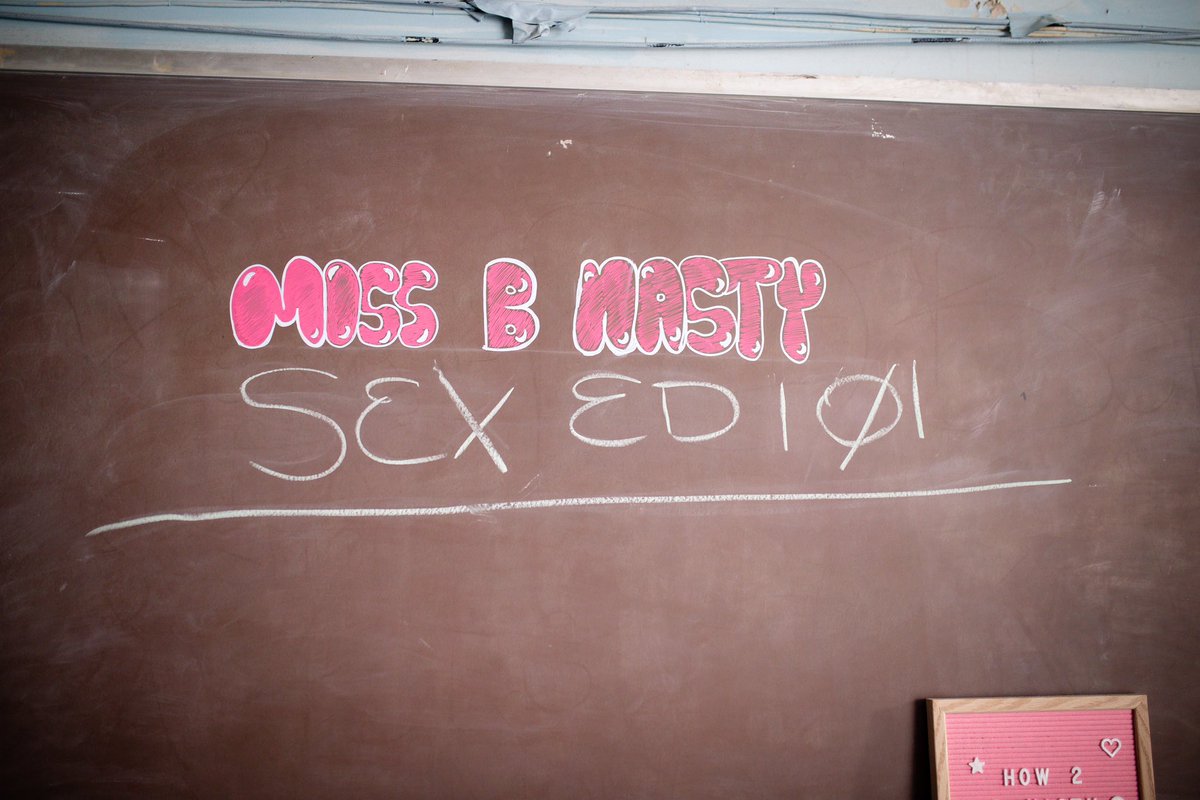 MISS B NASTY
SEX ED 101
HOW 2